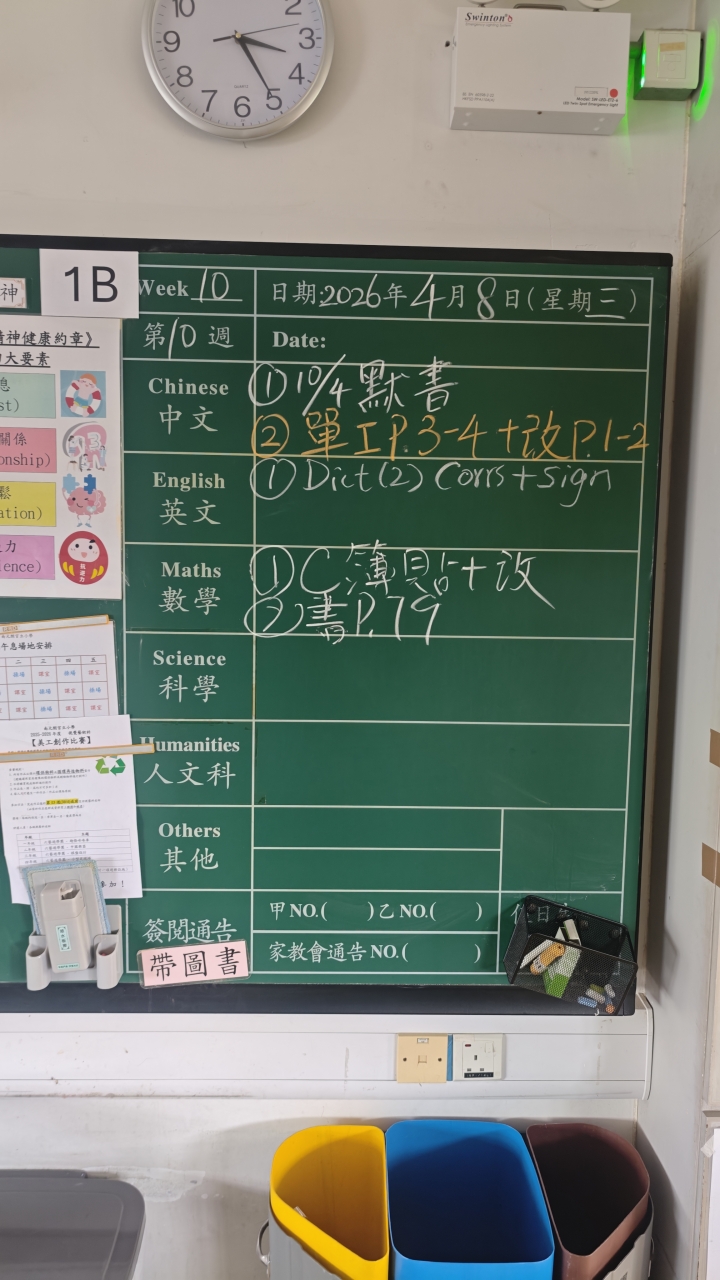 10
2
9
3
8
4
7
6
5
QUARTZ
Swinton
神
1B
Week 10
日期:2026年4月8日(星期三)
第10週
Date:
Chinese
中文
① 10/4 默書
② 單工P.3-4+改P.1-2
English
英文
① Dict(2) Corrs+sign
Maths
數學
① C簿具占+改
② 書P.79
Science
科學
Humanities
人文科
Others
其他
簽閱通告
甲NO.( )乙NO.( )
家教會通告NO.( )
帶圖書
神健康約章》
大要素
st)
關係
onship)
鬆
ation)
力
ience)
午息場地安排
二 三 四 五
【美工創作比賽】